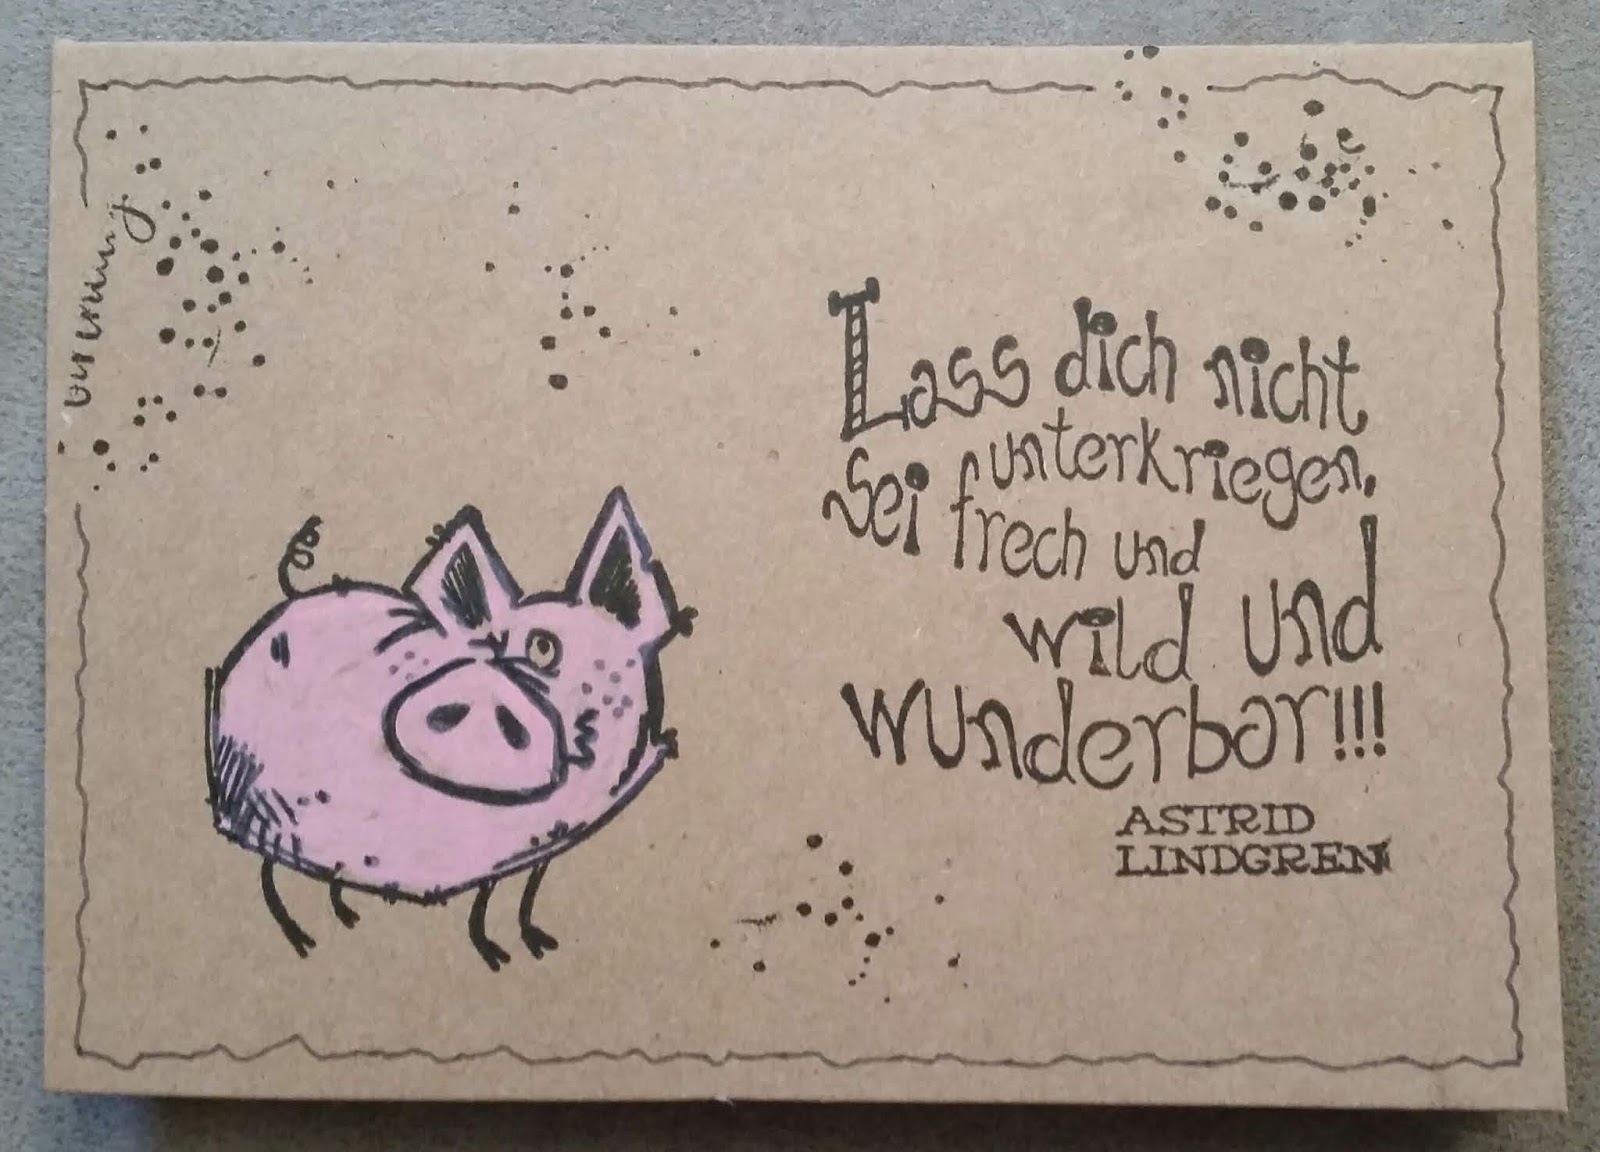 Lass dich nicht
unterkriegen.
Sei frech und
wild und
wunderbar!!!
ASTRID
LINDGREN